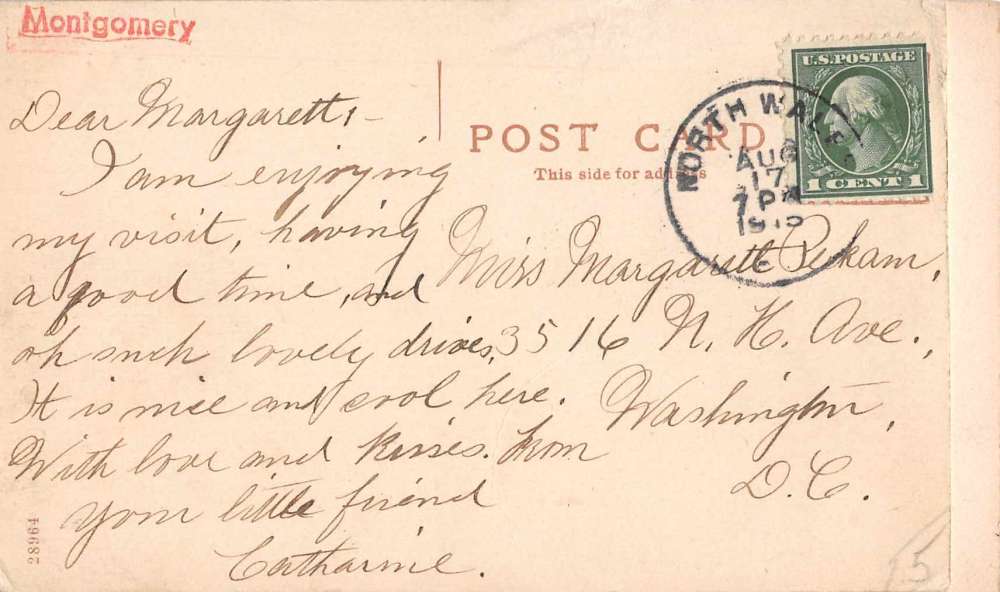 Montgomery
Dear Margarett,-
I am enjoying
my visit, having
a good time, and
oh such lovely drives,
It is nice and cool here.
With love and kisses. from
your little friend
Catharine.
28964
POST CARD
This side for address
NORTH WALES
AUG
17
7 PM
1915
U.S. POSTAGE
1 CENT 1
Miss Margarett Peckam,
3516 N. H. Ave.,
Washington,
D.C.
5